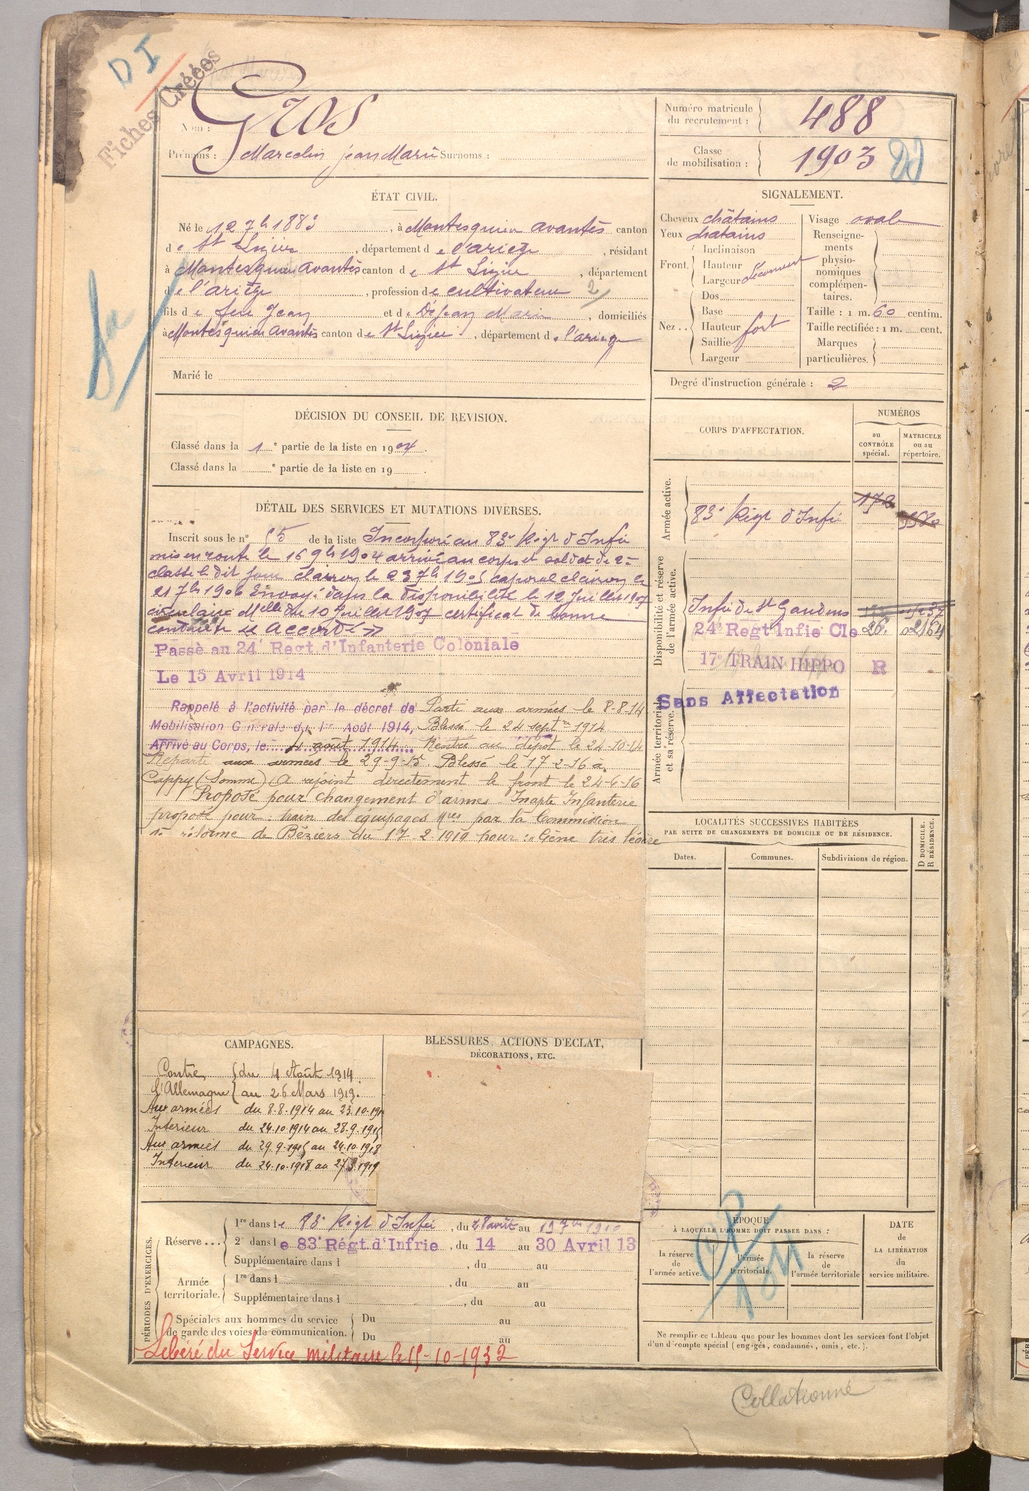 D I
Fiches Créées
Nom : Gros
Prénoms : Marcelin jean Marie Surnoms :
Numéro matricule du recrutement : 488
Classe de mobilisation : 1903
ÉTAT CIVIL.
Né le 12 7h 1883, à Montesquieu avantès canton
de St Lizier, département de l'ariège, résidant
à Montesquieu avantès canton de St Lizier, département
de l'ariège, profession de cultivateur 2
fils de feu Jean et de Dejean Marie, domiciliés
à Montesquieu avantès canton de St Lizier, département de l'ariege
Marié le
SIGNALEMENT.
Cheveux châtains
Yeux châtains
Front. Inclinaison
Hauteur
Largeur découvert
Nez... Dos
Base
Hauteur fort
Saillie
Largeur
Visage oval
Renseignements physionomiques complémentaires.
Taille : 1 m. 60 centim.
Taille rectifiée : 1 m. cent.
Marques particulières.
Degré d'instruction générale : 2
DÉCISION DU CONSEIL DE REVISION.
Classé dans la 1e partie de la liste en 1904.
Classé dans la e partie de la liste en 19 .
DÉTAIL DES SERVICES ET MUTATIONS DIVERSES.
Inscrit sous le n° 55 de la liste Incorporé au 83e Régt d'Infie
mis en route le 16 9h 1904 arrivé au corps et soldat de 2e
classe le dit jour clairon le 23 7h 1905 caporal clairon le
21 7h 1906 Envoyé dans la disponibilité le 12 Juillet 1907
circulaire Mlle du 10 Juillet 1907 certificat de bonne
conduite "Accordé"
Passé au 24e Regt d'Infanterie Coloniale
Le 15 Avril 1914
Rappelé à l'activité par le décret de Parti aux armées le 8-8-14
Mobilisation Générale du 1er Août 1914, Blessé le 24 septre 1914
Arrivé au Corps, le 4 août 1914. Rentré au dépôt le 24-10-14
Reparti aux armées le 29-9-15 Blessé le 17-2-16 à
Cappy (Somme) A rejoint directement le front le 24-6-16
Proposé pour changement d'armes. Inapte Infanterie
proposé pour : train des équipages Mres par la Commission
de réforme de Béziers du 17-2-1919 pour : Gêne très légère
CORPS D'AFFECTATION.
NUMÉROS
au CONTRÔLE spécial.
MATRICULE ou au répertoire.
Armée active.
83e Régt d'Infie
Disponibilité et réserve de l'armée active.
Infie de St Gaudens
24e Regt Infie Cle 26. 02164
17e TRAIN HIPPO R
Sans Affectation
Armée territoriale et sa réserve.
LOCALITÉS SUCCESSIVES HABITÉES
PAR SUITE DE CHANGEMENTS DE DOMICILE OU DE RÉSIDENCE.
Dates. Communes. Subdivisions de région. D DOMICILE. R RÉSIDENCE.
CAMPAGNES.
Contre l'Allemagne du 4 Août 1914
au 26 Mars 1919.
Aux armées du 8.8.1914 au 23.10.191
Intérieur du 24.10.1914 au 28.9.1915
Aux armées du 29.9.1915 au 24.10.1918
Intérieur du 24.10.1918 au 27.3.1919
BLESSURES, ACTIONS D'ÉCLAT,
DÉCORATIONS, ETC.
PÉRIODES D'EXERCICES.
Réserve... 1re dans le 88e Régt d'Infie, du 28 août au 19 7bre 1910
2e dans le 83e Régt. d'Infrie, du 14 au 30 Avril 13
Supplémentaire dans l , du au
Armée territoriale. 1re dans l , du au
Supplémentaire dans l , du au
Spéciales aux hommes du service de garde des voies de communication. Du au
Du au
Libéré du Service militaire le 15-10-1932
ÉPOQUE
À LAQUELLE L'HOMME DOIT PASSER DANS :
la réserve de l'armée active.
l'armée territoriale.
la réserve de l'armée territoriale
DATE de LA LIBÉRATION du service militaire.
Ne remplir ce tableau que pour les hommes dont les services font l'objet
d'un décompte spécial (engagés, condamnés, omis, etc.).
Collationné